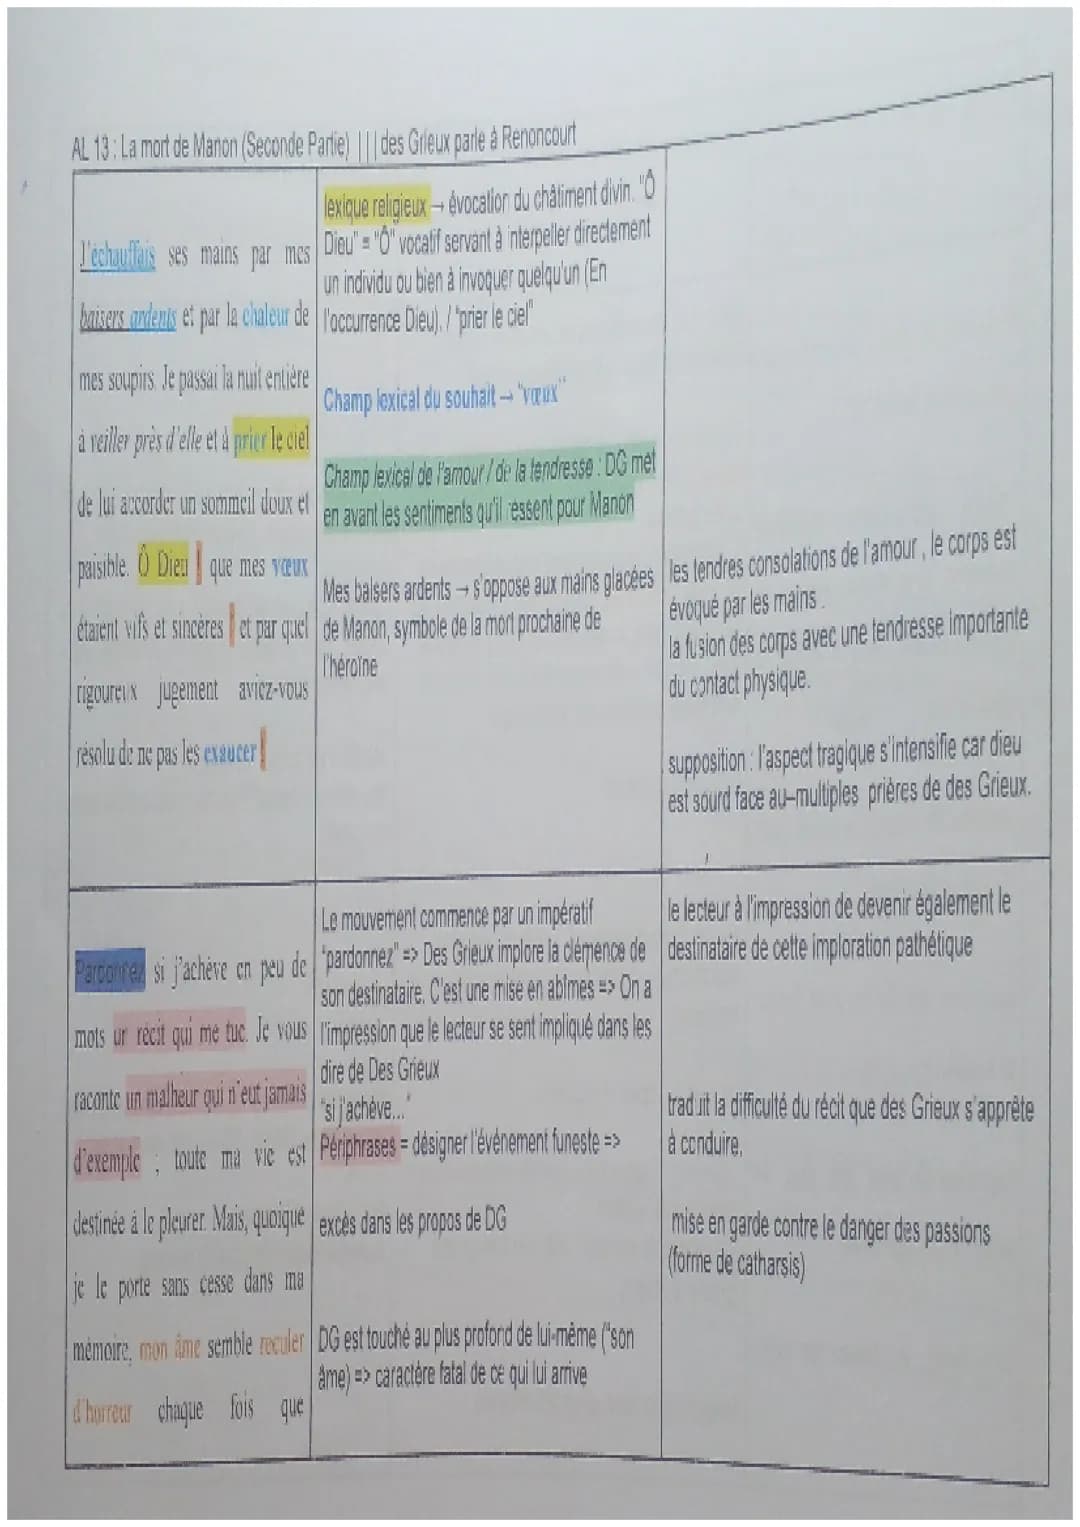 AL 13 : La mort de Manon (Seconde Partie) ||| des Grieux parle à Renoncourt
J'échauffais ses mains par mes
baisers ardents et par la chaleur de
mes soupirs. Je passai la nuit entière
à veiller près d'elle et à prier le ciel
de lui accorder un sommeil doux et
paisible. Ô Dieu ! que mes vœux
étaient vifs et sincères ! et par quel
rigoureux jugement aviez-vous
résolu de ne pas les exaucer !
lexique religieux → évocation du châtiment divin. "Ô
Dieu" = "Ô" vocatif servant à interpeller directement
un individu ou bien à invoquer quelqu'un (En
l'occurrence Dieu). / "prier le ciel"
Champ lexical du souhait → "vœux"
Champ lexical de l'amour / de la tendresse : DG met
en avant les sentiments qu'il ressent pour Manon
Mes baisers ardents → s'oppose aux mains glacées
de Manon, symbole de la mort prochaine de
l'héroïne
les tendres consolations de l'amour , le corps est
évoqué par les mains .
la fusion des corps avec une tendresse importante
du contact physique.
supposition : l'aspect tragique s'intensifie car dieu
est sourd face au-multiples prières de des Grieux.
Pardonnez si j'achève en peu de
mots un récit qui me tue. Je vous
raconte un malheur qui n'eut jamais
d'exemple ; toute ma vie est
destinée à le pleurer. Mais, quoique
je le porte sans cesse dans ma
mémoire, mon âme semble reculer
d'horreur chaque fois que
Le mouvement commence par un impératif
"pardonnez" => Des Grieux implore la clémence de
son destinataire. C'est une mise en abîmes => On a
l'impression que le lecteur se sent impliqué dans les
dire de Des Grieux
"si j'achève..."
Périphrases = désigner l'événement funeste =>
excès dans les propos de DG
DG est touché au plus profond de lui-même ("son
âme) => caractère fatal de ce qui lui arrive
le lecteur à l'impression de devenir également le
destinataire de cette imploration pathétique
traduit la difficulté du récit que des Grieux s'apprête
à conduire.
mise en garde contre le danger des passions
(forme de catharsis)